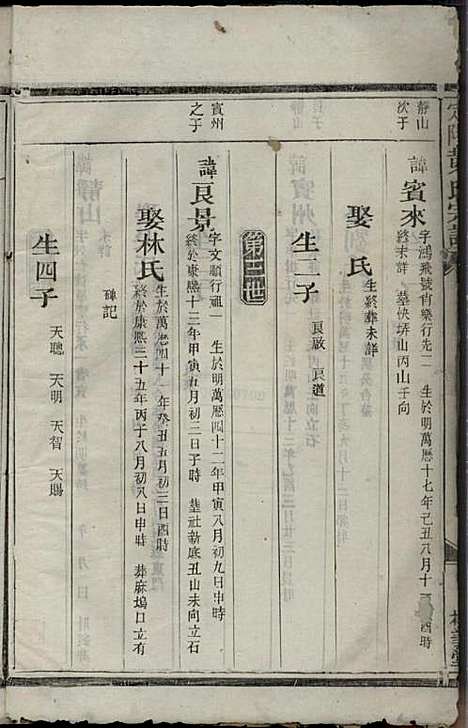 靜山
次子
諱賓來
字鴻飛號肖樂行先二 生於明萬曆十七年己丑八月十
酉時
終未詳 墓快塝山丙山壬向
娶 氏
生終葬未詳
生二子
良啟 良道
第二世
賓州
之子
諱良景
字文順行祖一 生於明萬曆四十二年甲寅八月初九日申時
終於康熙十三年甲寅五月初三日子時 墓社新底丑山未向立石
碑記
娶林氏
生於萬曆四十一年癸丑五月初三日酉時
終於康熙三十五年丙子八月初八日申時 葬麻塢口立有
生四子
天聰 天明 天智 天賜